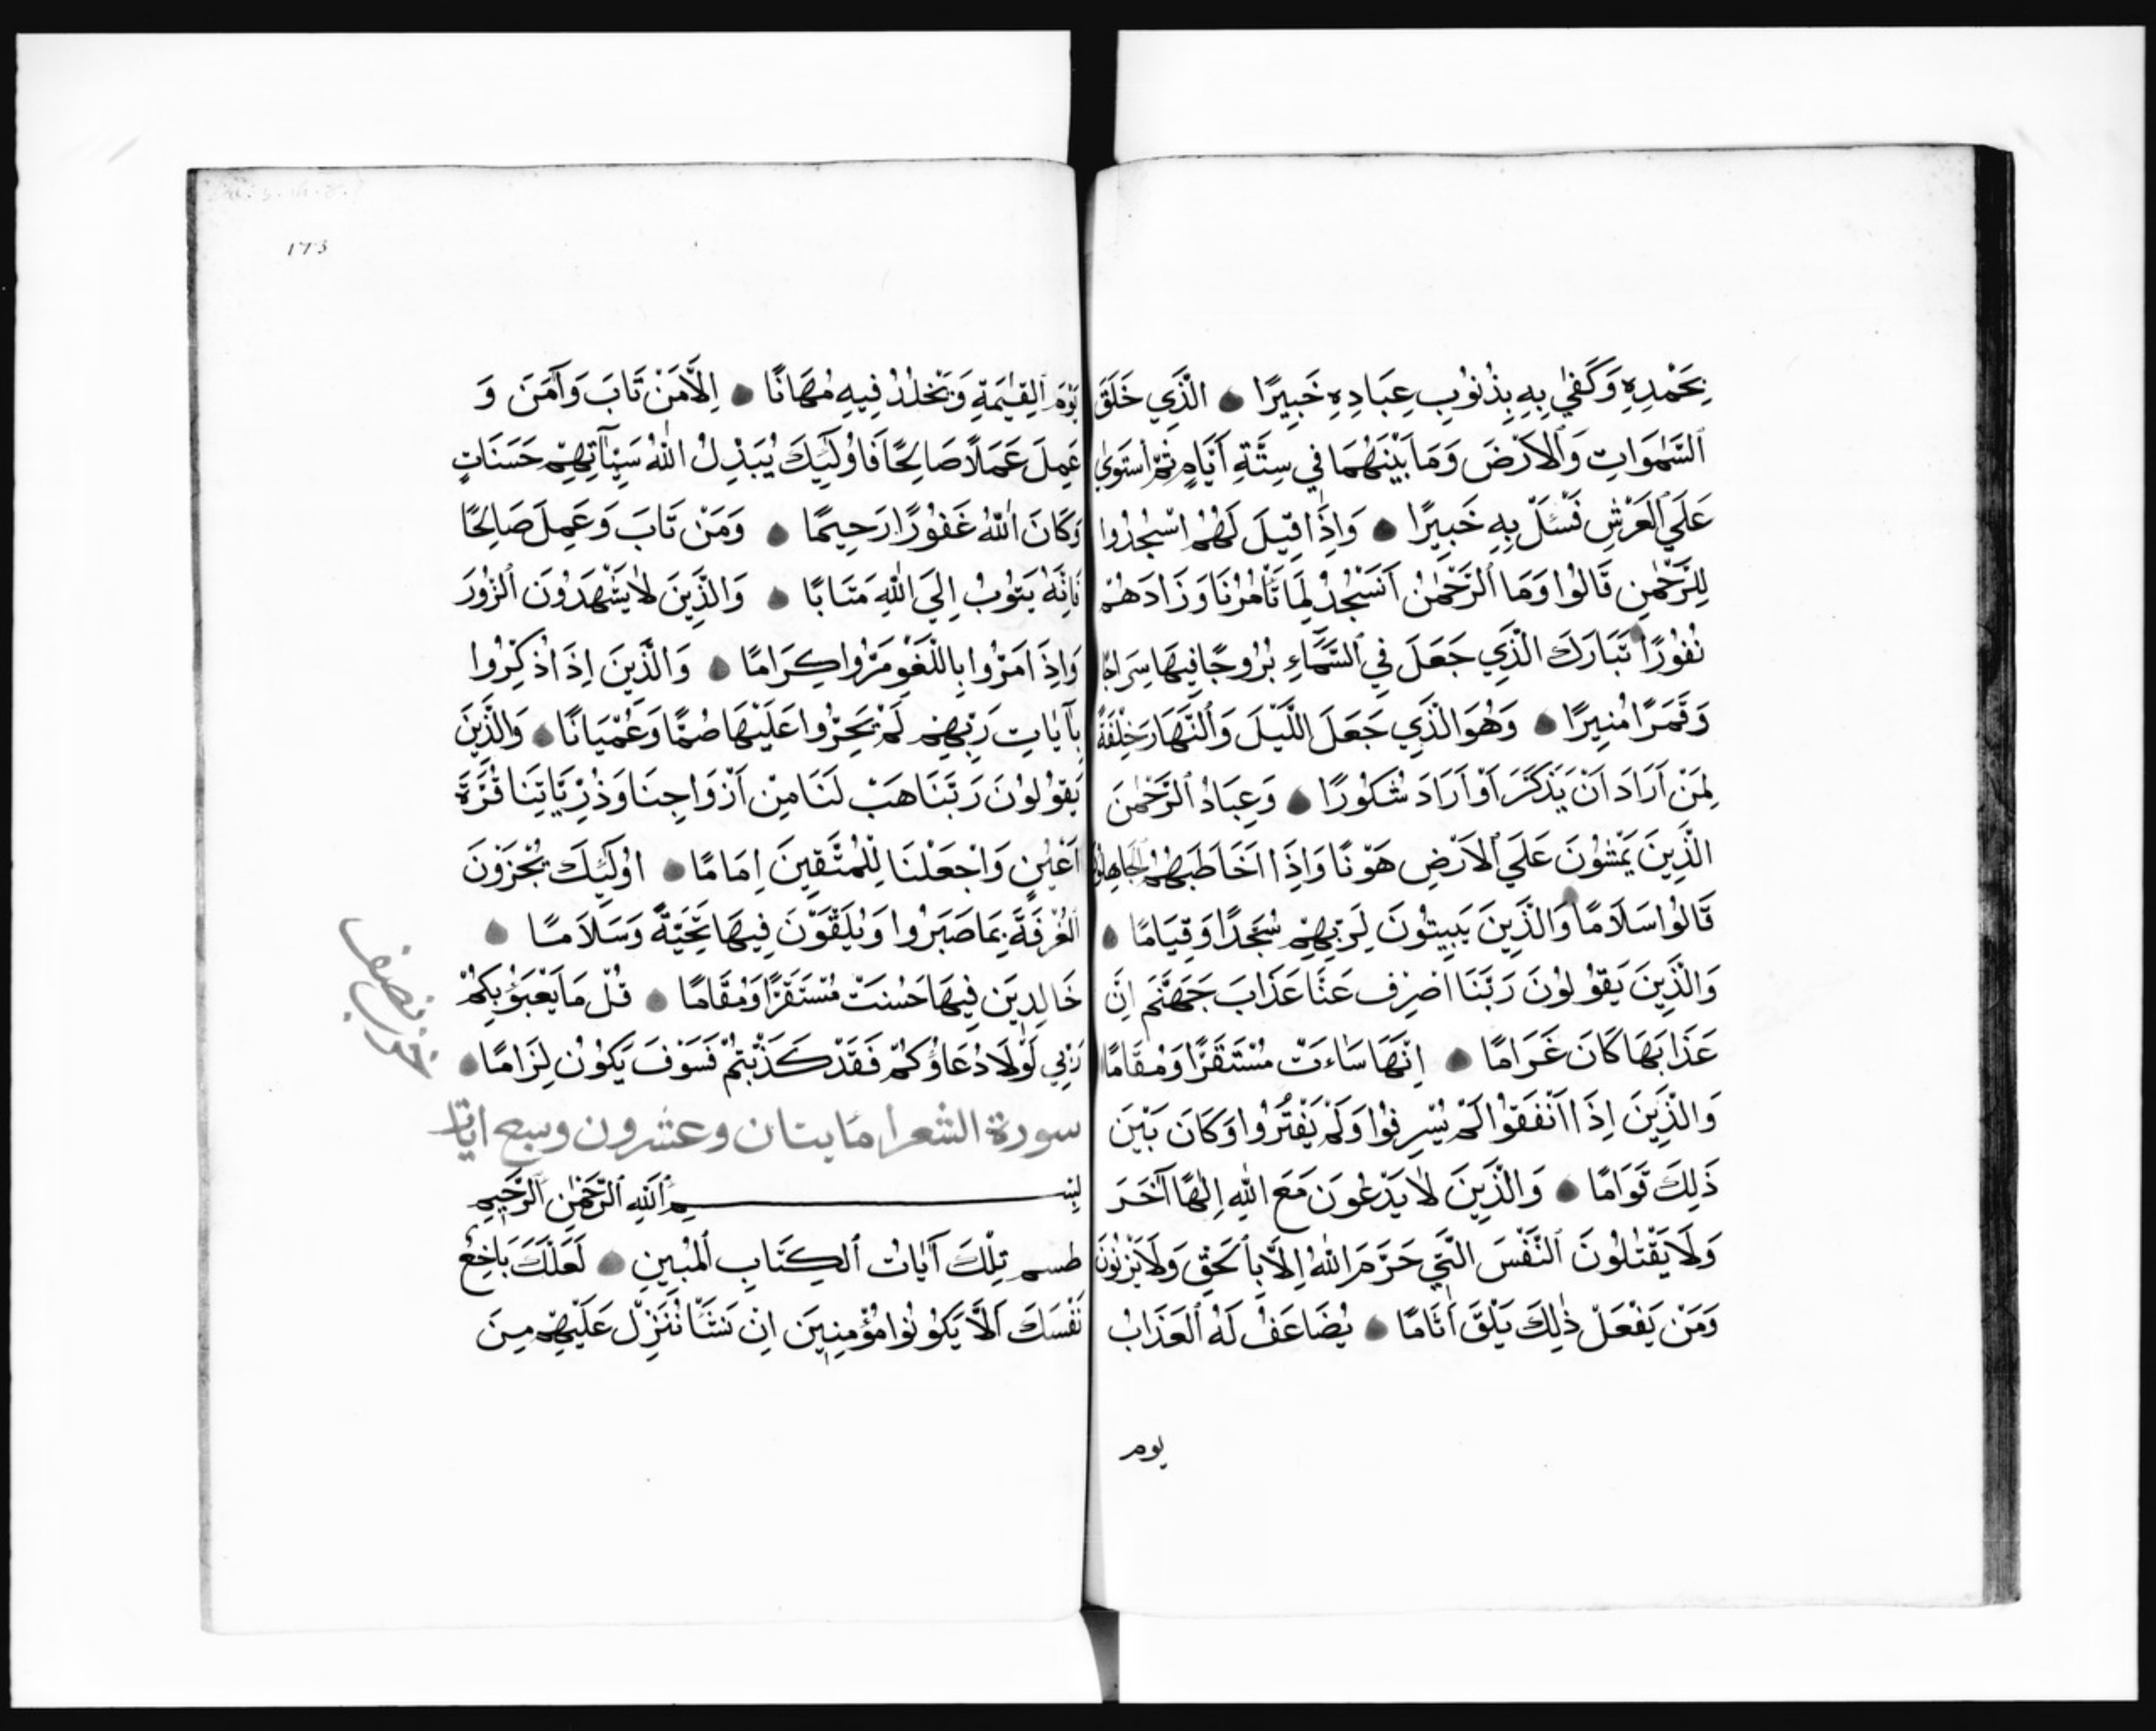 بِحَمْدِهِ وَكَفٰي بِهِ بِذُنُوبِ عِبَادِهِ خَبِيرًا الَّذِي خَلَقَ
السَّمٰوَاتِ وَالْاَرْضَ وَمَا بَيْنَهُمَا فِي سِتَّةِ اَيَّامٍ ثُمَّ اسْتَوٰي
عَلَي الْعَرْشِ فَسْئَلْ بِهِ خَبِيرًا وَاِذَا قِيلَ لَهُمُ اسْجُدُوا
لِلرَّحْمٰنِ قَالُوا وَمَا الرَّحْمٰنُ اَنَسْجُدُ لِمَا تَأْمُرُنَا وَزَادَهُمْ
نُفُورًا تَبَارَكَ الَّذِي جَعَلَ فِي السَّمَاءِ بُرُوجًا فِيهَا سِرَاجًا
وَقَمَرًا مُنِيرًا وَهُوَ الَّذِي جَعَلَ اللَّيْلَ وَالنَّهَارَ خِلْفَةً
لِمَنْ اَرَادَ اَنْ يَذَّكَّرَ اَوْ اَرَادَ شُكُورًا وَعِبَادُ الرَّحْمٰنَ
الَّذِينَ يَمْشُونَ عَلَي الْاَرْضِ هَوْنًا وَاِذَا اخَاطَبَهُمُ الْجَاهِلُونَ
قَالُوا سَلَامًا وَالَّذِينَ يَبِيتُونَ لِرَبِّهِمْ سُجَّدًا وَقِيَامًا
وَالَّذِينَ يَقُولُونَ رَبَّنَا اصْرِفْ عَنَّا عَذَابَ جَهَنَّمَ اِنَّ
عَذَابَهَا كَانَ غَرَامًا اِنَّهَا سَاءَتْ مُسْتَقَرًّا وَمُقَامًا
وَالَّذِينَ اِذَا اَنْفَقُوا لَمْ يُسْرِفُوا وَلَمْ يَقْتُرُوا وَكَانَ بَيْنَ
ذَلِكَ قَوَامًا وَالَّذِينَ لَا يَدْعُونَ مَعَ اللّٰهِ اِلٰهًا آخَرَ
وَلَا يَقْتُلُونَ النَّفْسَ الَّتِي حَرَّمَ اللّٰهُ اِلَّا بِالْحَقِّ وَلَا يَزْنُونَ
وَمَنْ يَفْعَلْ ذٰلِكَ يَلْقَ اَثَامًا يُضَاعَفْ لَهُ الْعَذَابُ
يوم
173
يَوْمَ الْقِيٰمَةِ وَيَخْلُدْ فِيهِ مُهَانًا اِلَّا مَنْ تَابَ وَآمَنَ وَ
عَمِلَ عَمَلًا صَالِحًا فَاُولٰئِكَ يُبَدِّلُ اللّٰهُ سَيِّآتِهِمْ حَسَنَاتٍ
وَكَانَ اللّٰهُ غَفُورًا رَحِيمًا وَمَنْ تَابَ وَعَمِلَ صَالِحًا
فَاِنَّهُ يَتُوبُ اِلَي اللّٰهِ مَتَابًا وَالَّذِينَ لَا يَشْهَدُونَ الزُّورَ
وَاِذَا مَرُّوا بِاللَّغْوِ مَرُّوا كِرَامًا وَالَّذِينَ اِذَا ذُكِّرُوا
بِآيَاتِ رَبِّهِمْ لَمْ يَخِرُّوا عَلَيْهَا صُمًّا وَعُمْيَانًا وَالَّذِينَ
يَقُولُونَ رَبَّنَا هَبْ لَنَا مِنْ اَزْوَاجِنَا وَذُرِّيَّاتِنَا قُرَّةَ
اَعْيُنٍ وَاجْعَلْنَا لِلْمُتَّقِينَ اِمَامًا اُولٰئِكَ يُجْزَوْنَ
الْغُرْفَةَ بِمَا صَبَرُوا وَيُلَقَّوْنَ فِيهَا تَحِيَّةً وَسَلَامًا
خَالِدِينَ فِيهَا حَسُنَتْ مُسْتَقَرًّا وَمُقَامًا قُلْ مَا يَعْبَؤُ بِكُمْ
رَبِّي لَوْلَا دُعَاؤُكُمْ فَقَدْ كَذَّبْتُمْ فَسَوْفَ يَكُونُ لِزَامًا
سورة الشعرا مايتان وعشرون وسبع ايات
بِسْمِ اللّٰهِ الرَّحْمٰنِ الرَّحِيمِ
طسم تِلْكَ آيَاتُ الْكِتَابِ الْمُبِينِ لَعَلَّكَ بَاخِعٌ
نَفْسَكَ اَلَّا يَكُونُوا مُؤْمِنِينَ اِنْ نَشَأْ نُنَزِّلْ عَلَيْهِمْ مِنَ